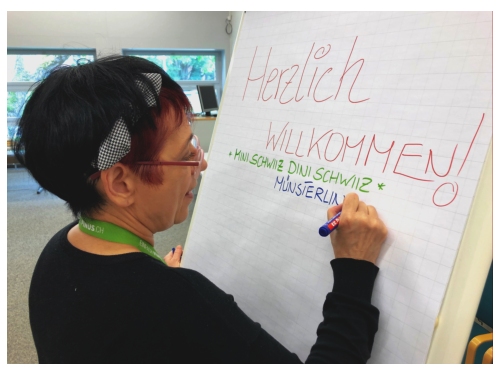 Herzlich
WILLKOMMEN!
* MINI SCHWIIZ DINI SCHWIIZ *
MÜNSTERLIN